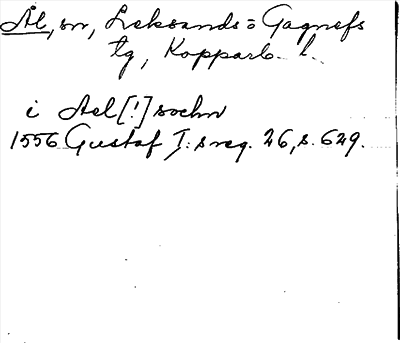 Ål, sn, Leksands= Gagnefs
tg, Kopparb. l.
i Aal [!] sochn
1556 Gustaf I: s reg. 26, s. 629.